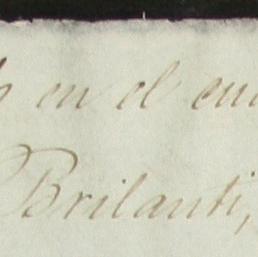 en el
Brilanti,